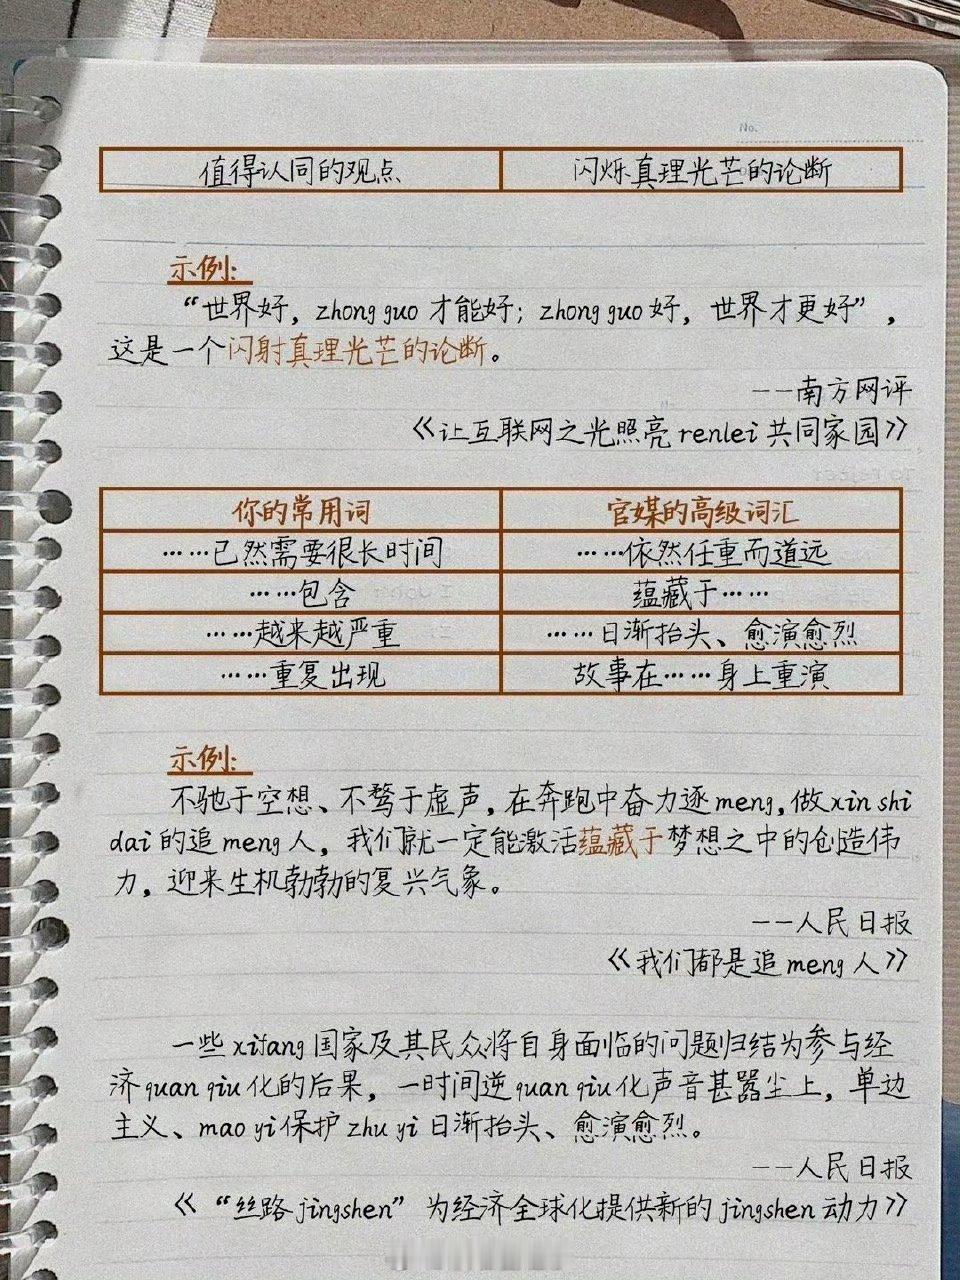 No.
值得认同的观点 闪烁真理光芒的论断
示例:
“世界好，zhong guo 才能好；zhong guo 好，世界才更好”，
这是一个闪射真理光芒的论断。
——南方网评
《让互联网之光照亮 renlei 共同家园》
你的常用词 官媒的高级词汇
……已然需要很长时间 ……依然任重而道远
……包含 蕴藏于……
……越来越严重 ……日渐抬头、愈演愈烈
……重复出现 故事在……身上重演
示例:
不驰于空想、不骛于虚声，在奔跑中奋力逐 meng，做 xin shi
dai 的追 meng 人，我们就一定能激活蕴藏于梦想之中的创造伟
力，迎来生机勃勃的复兴气象。
——人民日报
《我们都是追 meng 人》
一些 xifang 国家及其民众将自身面临的问题归结为参与经
济 quan qiu 化的后果，一时间逆 quan qiu 化声音甚嚣尘上，单边
主义、mao yi 保护 zhu yi 日渐抬头、愈演愈烈。
——人民日报
《“丝路 jingshen”为经济全球化提供新的 jingshen 动力》